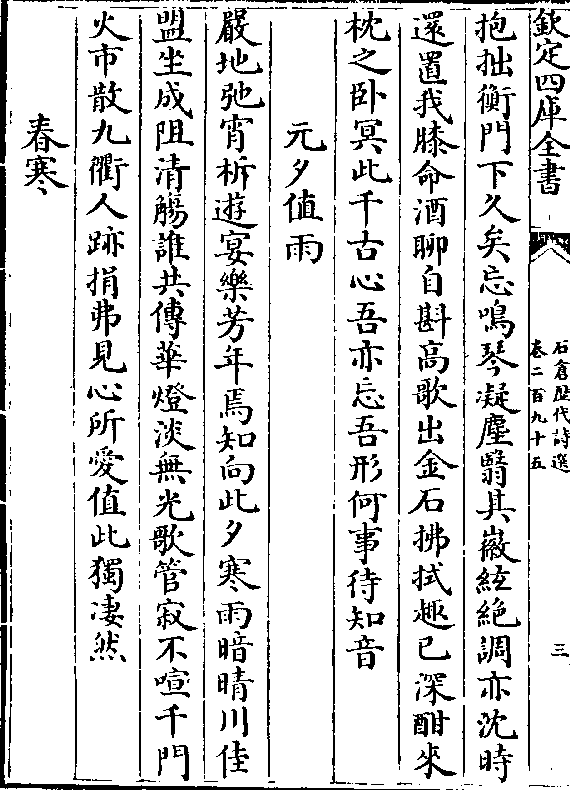 欽定四庫全書
石倉歷代詩選
卷二百九十五
三
抱拙衡門下久矣忘鳴琴凝塵翳其徽絃絶調亦沈時
還置我膝命酒聊自斟高歌出金石拂拭趣已深酣來
枕之卧冥此千古心吾亦忘吾形何事待知音
元夕值雨
嚴地弛宵柝遊宴樂芳年焉知向此夕寒雨暗晴川佳
盟坐成阻清觴誰共傳華燈淡無光歌管寂不喧千門
火市散九衢人跡捐弗見心所愛值此獨凄然
春寒